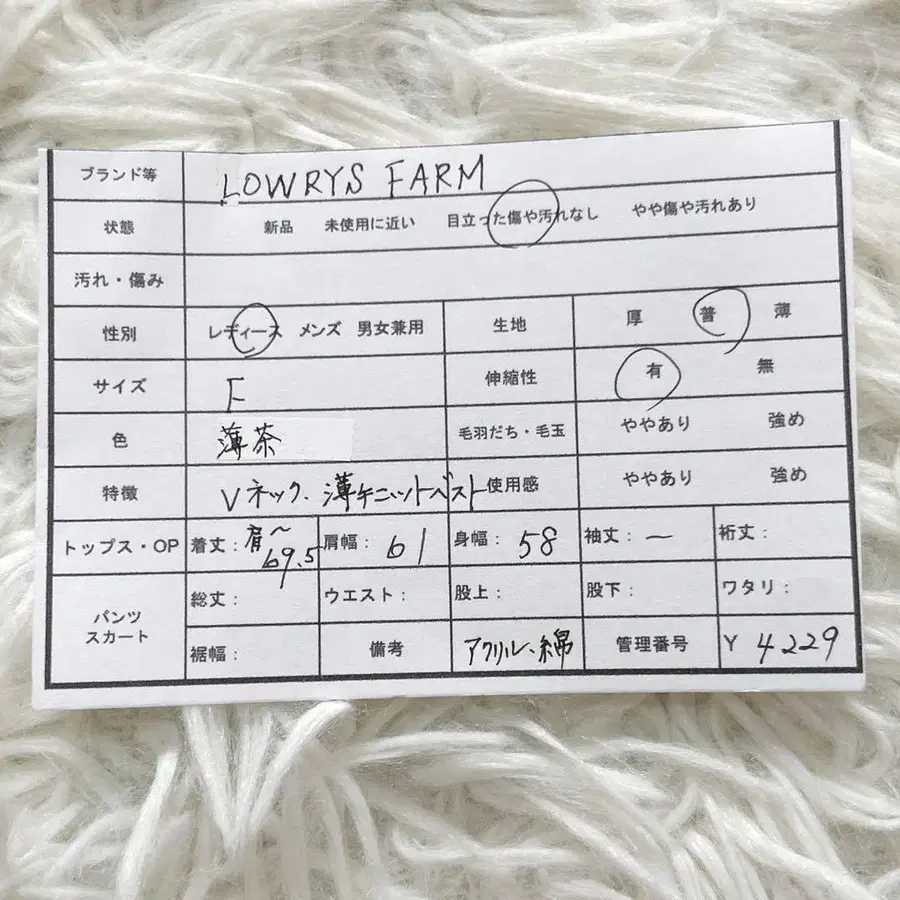 ブランド等 LOWRYS FARM
状態 新品 未使用に近い 目立った傷や汚れなし やや傷や汚れあり
汚れ・傷み
性別 レディース メンズ 男女兼用 生地 厚 普 薄
サイズ F 伸縮性 有 無
色 薄茶 毛羽だち・毛玉 ややあり 強め
特徴 Vネック、薄手ニットベスト 使用感 ややあり 強め
トップス・OP 着丈：肩〜69.5 肩幅：61 身幅：58 袖丈：ー 裄丈：
パンツ スカート 総丈： ウエスト： 股上： 股下： ワタリ：
裾幅： 備考 アクリル、綿 管理番号 Y 4229